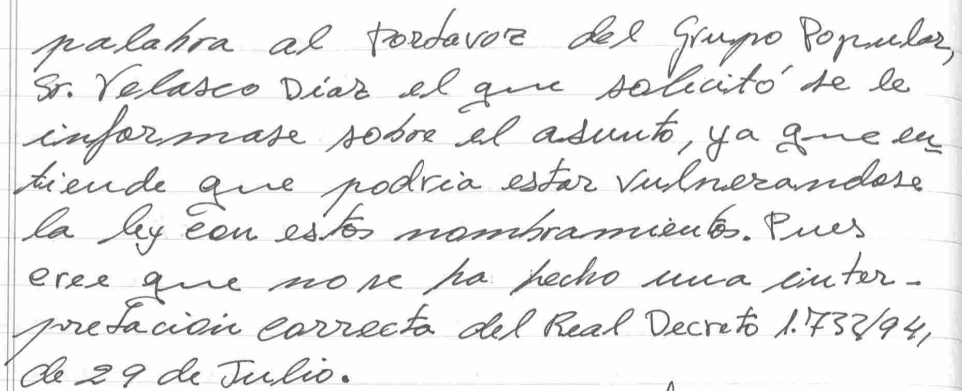 palabra al Portavoz del Grupo Popular,
Sr. Velasco Díaz el que solicitó se le
informase sobre el asunto, ya que en
tiende que podria estar vulnerandose
la ley con estos nombramientos. Pues
cree que no se ha hecho una inter-
pretación correcta del Real Decreto 1.732/94,
de 29 de Julio.